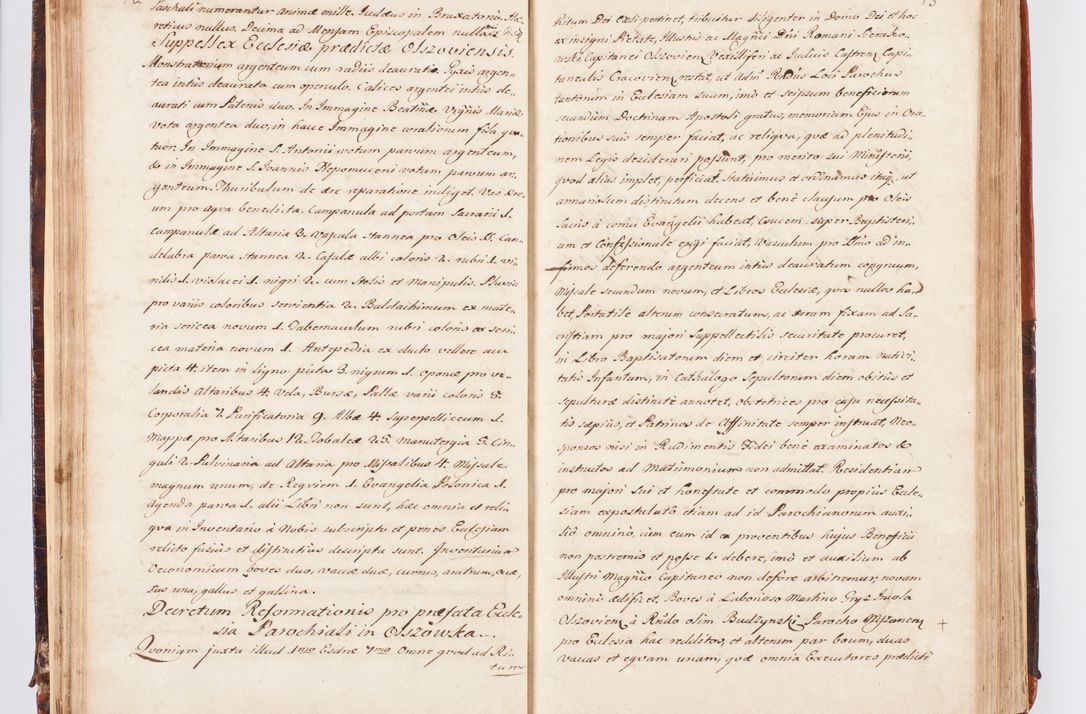 Paschali numerantur animæ mille. Judæus in Braxatorio. Hæ-
reticus nullus. Decima ad Mensam Episcopalem nullam
Suppellex Ecclesiæ prædictæ Olszoviensis.
Monstratorium argenteum cum radiis deauratis. Pyxis argen-
tea intus deaurata cum operculo. Calices argentei intus de-
aurati cum Patenis duo. In Immagine Beatmæ Virginis Mariæ
vota argentea duo, in hacce Immagine corallorum fila qua-
tuor. In Immagine S. Antonii votum parvum argenteum,
& in Immagine S. Joannis Nepomuceni votum parvum ar-
genteum. Thuribulum de ære reparatione indiget. Vas ære-
um pro aqva benedicta. Campanula ad portam Sacrarii 1.
Campanulæ ad Altaria 3. vascula stannea pro Oleis Can-
delabra parva stannea 2. Casulæ albi coloris 2. rubri 1. vi-
ridis 1. violacei 1. nigri 2. cum Stolis et Manipulis. Pluvia
pro variis coloribus servientia 2. Baldachimum ex mate-
ria sericea novum 1. Tabernaculum rubri coloris ex seri-
cea materia novum 1. Antepedia ex ducto vellere acu
picta 4. item in ligno picta 3. nigrum 1. oponæ pro ve-
landis Altaribus 4. Vela, Bursæ, Pallæ varii coloris 5.
Corporalia 7. Purificatoria 9. Albæ 4. Superpelliceum 1.
Mappæ pro Altaribus 12. Tobaleæ 25. Manutergia 5. Cin-
guli 2. Pulvinaria ad Altaria pro Missalibus 4. Missale
magnum unum, de Reqviem 1. Evangelia Polonica 1.
Agenda parva 1. alii Libri non sunt, hæc omnia et reli-
qva in Inventario à Nobis subscripto et penes Ecclesiam
relicto fusius et distinctius descripta sunt. Inventarium
Oeconomicum boves duo, vaccæ duæ, currus, aratrum,
sus una, gallus et gallina.
Decretum Reformationis pro præfata Eccle-
sia Parochiali in Olszowka.
Qvoniam juxta illud 1mo Esdræ 7mo Omne qvod ad Ri-
tum
Ritum Dei Cæli pertinet, tribuitur diligenter in Domo Dei et hoc
ex insigni Pietate, Illustris ac Magnci Dni Romani Sierako-
wski Capitanei Olszovien Vexilliferi ac Judicis Castren Capi-
tanealis Cracovien restat, ut Admodum Rndus Loci Parochus
tantorum in Ecclesiam suam, imò et seipsum beneficiorum
secundùm Doctrinam Apostoli gratus, memoriam Ejus in Ora-
tionibus suis semper faciat, ac reliqva, quæ ad plenitudi-
nem Legis desiderari possunt, pro merito sui Ministerii,
qvod alias implet, perficiat. Statuimus et ordinamus itaq, ut
armariolum distinctum decens et benè clausum pro Oleis
Sacris à cornu Evangelii habeat, Crucem super Baptisteri-
um et Confessionale erigi faciat, Vasculum pro Dno ad in-
firmos deferendo argenteum intus deauratum congruum,
Missale secundum novum, et Libros Ecclesiæ, qvos nullos ha-
bet, Portatile alterum consecratum, ac seram fixam ad Sa-
cristiam pro majori Suppellectilis securitate procuret,
in Libro Baptisatorum diem et circiter horam nativi-
tatis Infantum, in Cathalogo Sepultorum diem obitus et
sepulturæ distinctè annotet, obstetrices pro casu necessita-
tis sæpius, et Patrinos de Affinitate semper instruat, Neo-
sponsos nisi in Rudimentis Fidei benè examinatos &
instructos ad Matrimonium non admittat. Residentiam
pro majori sui et honestate et commodo propius Eccle-
siam expostulato etiam ad id Parochianorum auxi-
lio omninò, cùm eum id ex proventibus hujus Beneficii
non postremis et posse & debere, imò et auxilium ab
Illustri Magnco Capitaneo non defore arbitremur, novam
omninò ædificet. Boves à Laborioso Martino Gryz Incola
Olszovien, à Rndo olim Budzynski Parocho Mszanen
pro Ecclesia hac redditos, et alterum par boum, duas
vaccas et eqvam unam, qvæ omnia Executores prædicti